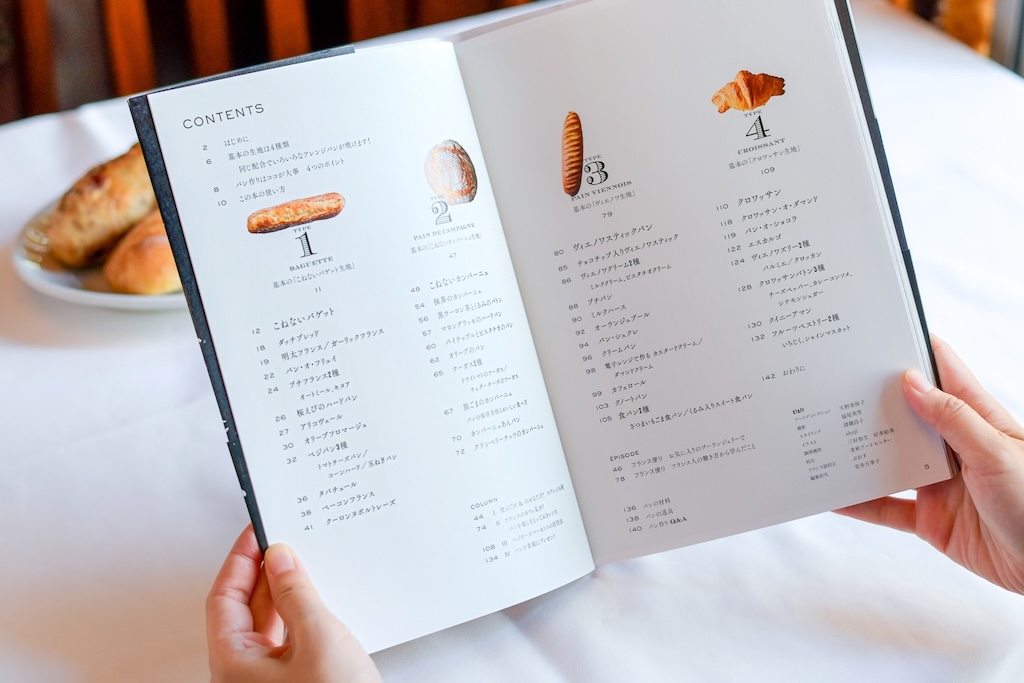 CONTENTS
2 はじめに
6 基本の生地は4種類
同じ配合でいろいろなアレンジパンが焼けます!
8 パン作りはココが大事 4つのポイント
10 この本の使い方
TYPE
1
BAGUETTE
基本の「こねないバゲット生地」
11
12 こねないバゲット
18 ダッチブレッド
19 明太フランス/ガーリックフランス
22 パン・オ・フリュイ
24 プチフランス2種
オートミール、キヌア
26 桜えびのハードパン
27 アリコヴェール
30 オリーブフロマージュ
32 ベジパン2種
トマトチーズパン/
コーンハード/玉ねぎパン
36 タバチェール
38 ベーコンフランス
41 クーロンヌボルトレーズ
TYPE
2
PAIN DE CAMPAGNE
基本の「こねないカンパーニュ生地」
47
48 こねないカンパーニュ
54 抹茶のカンパーニュ
56 黒ウーロン茶とくるみのパン
57 マロングラッセのハードパン
60 パイナップルとピスタチオのパン
62 オリーブのパン
65 フーガス2種
ドライトマトのフーガス/
チェダーチーズのフーガス
67 黒ごまのカンパーニュ
パンの保存方法とおいしい食べ方
70 カンパーニュあんパン
72 クランベリーナッツのカンパーニュ
COLUMN
44 I
74 II
108 III
134 IV パンを素敵にプレゼント
TYPE
3
PAIN VIENNOIS
基本の「ヴィエノワ生地」
79
80 ヴィエノワスティックパン
85 チョコチップ入りヴィエノワスティック
86 ヴィエノワクリーム2種
ミルククリーム、ピスタチオクリーム
88 プチパン
90 ミルクハース
92 オーランジュブール
94 パン・シュクレ
96 クリームパン
98 電子レンジで作る カスタードクリーム/
ダマンドクリーム
99 カフェロール
103 クノートパン
105 食パン2種
さつまいもごま食パン/くるみ入りスイート食パン
ÉPISODE
46 フランス便り お気に入りのブーランジュリーで
78 フランス便り フランス人の働き方から学んだこと
136 パンの材料
138 パンの道具
140 パン作り Q&A
TYPE
4
CROISSANT
基本の「クロワッサン生地」
109
110 クロワッサン
118 クロワッサン・オ・ダマンド
119 パン・オ・ショコラ
122 エスカルゴ
124 ヴィエノワズリー2種
パルミエ/クロッカン
128 クロワッサンバトン3種
チーズペッパー、カレーコーンソメ、
シナモンシュガー
130 クイニーアマン
132 フルーツペストリー2種
いちじく、シャインマスカット
142 おわりに
STAFF
アートディレクション 天野美保子
撮影
スタイリング
イラスト
調理補助
校正
フランス語校正
編集担当
5